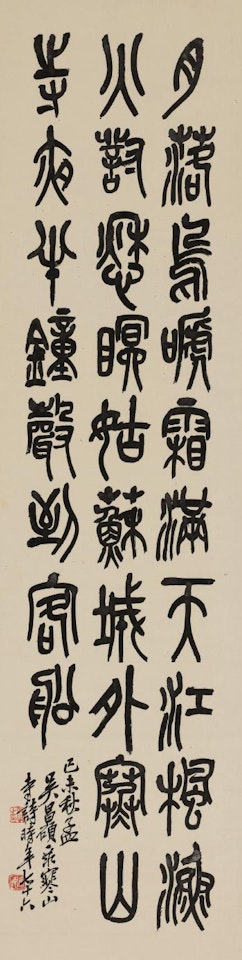 月落烏嗁霜滿天江楓漁
火對愁瞑姑蘇城外寒山
寺夜半鐘聲到客船
己未秋孟
吳昌碩彔寒山
寺詩時年七十六